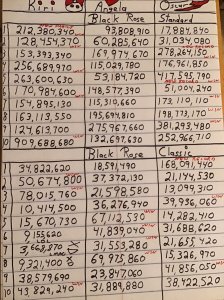 Kiri Angela Oscar
Black Rose Standard
1 212,380,340 93,808,910 17,984,840
2 128,454,370 60,285,640 31,034,080
3 153,393,340 169,671,960 278,264,150
4 256,689,970 115,029,780 176,961,850
5 263,600,630 53,184,720 417,595,790
6 170,984,600 148,577,390 51,004,240
7 154,895,130 115,310,660 173,110,110
8 163,113,550 195,694,810 198,773,170
9 124,613,700 275,967,660 381,293,480
10 909,688,680 132,697,630 252,966,710
Black Rose Classic
1 34,822,620 18,591,490 68,091,440
2 50,677,800 37,372,130 21,144,530
3 78,015,760 21,598,580 13,099,310
4 10,414,500 36,276,940 39,936,060
5 15,670,730 67,112,530 14,282,410
6 9,155,620 41,839,040 31,688,620
7 3,668,870 31,553,280 21,655,420
8 7,321,400 69,975,860 15,326,970
9 38,579,690 23,847,060 41,856,050
10 43,829,240 31,889,880 38,422,520